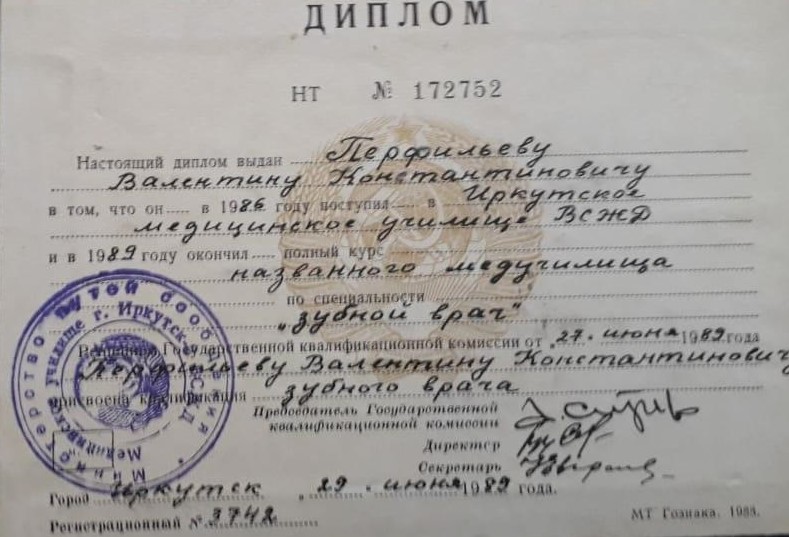 ДИПЛОМ
НТ № 172752
Настоящий диплом выдан Перфильеву
Валентину Константиновичу
в том, что он в 1986 году поступил в Иркутское
медицинское училище ВСЖД
и в 1989 году окончил полный курс
названного медучилища
по специальности
"зубной врач"
Решением Государственной квалификационной комиссии от 27. июня 1989 года
Перфильеву Валентину Константинович
присвоена квалификация зубного врача
Председатель Государственной
квалификационной комиссии
Директор
Секретарь
Город Иркутск 29. июня 1989 года.
Регистрационный № 3742
МТ Гознака. 1988.
Министерство путей сообщения
Медицинское училище г. Иркутск